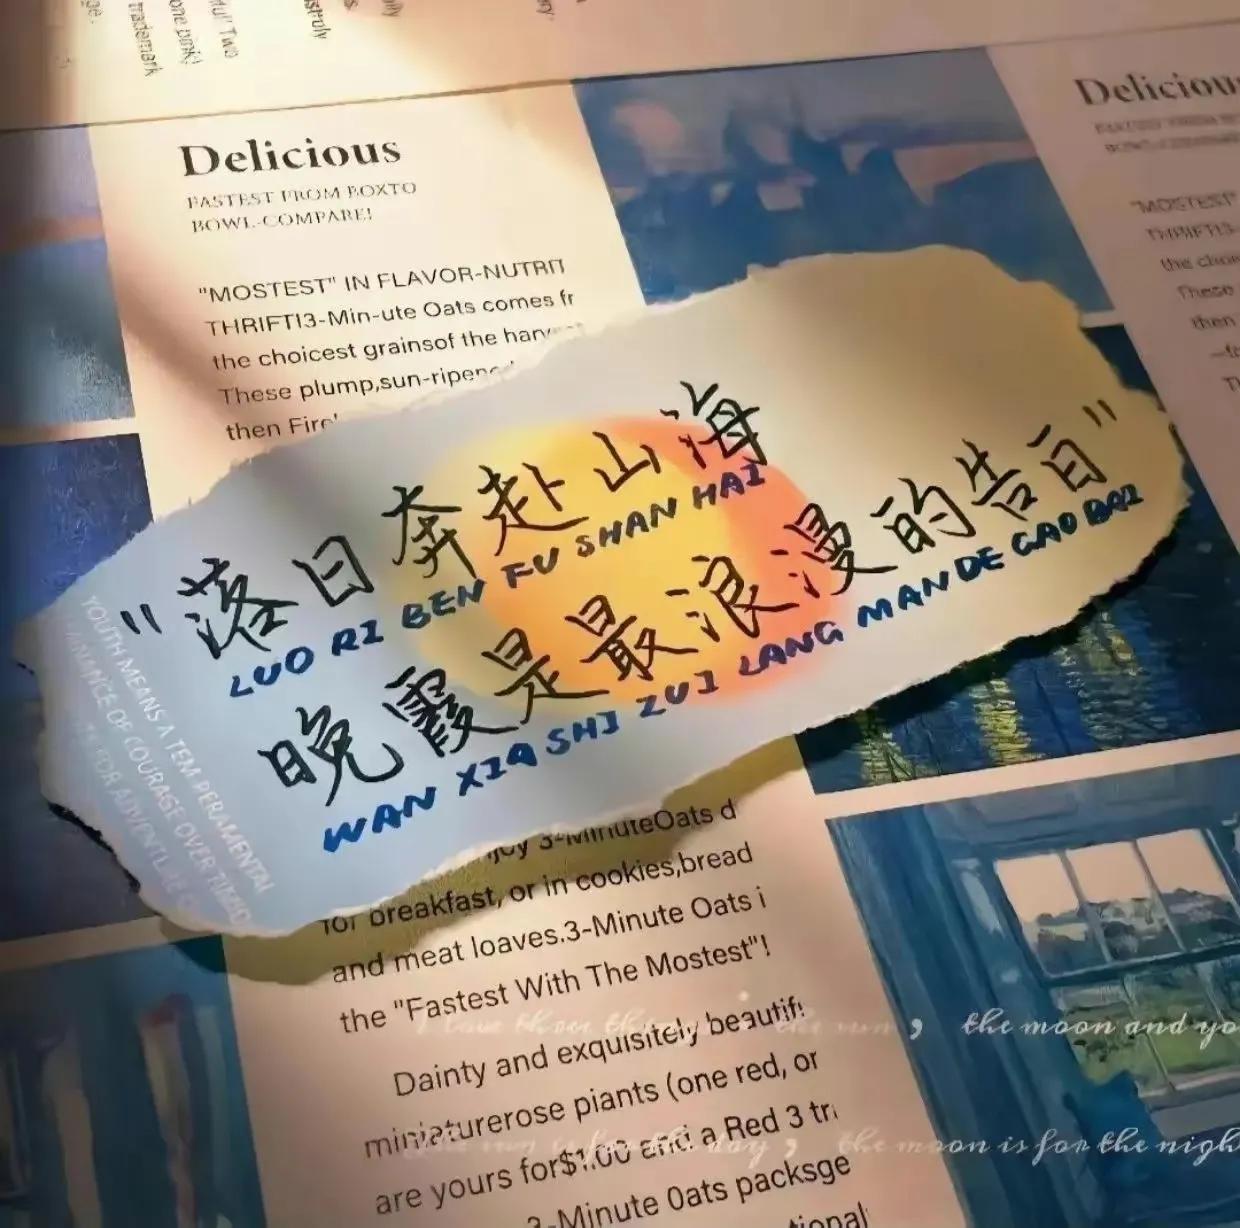 trademark
one pink!
Two
Delicious
FASTEST FROM BOXTO
BOWL-COMPARE!
"MOSTEST" IN FLAVOR-NUTRIT
THRIFTI3-Min-ute Oats comes fr
the choicest grainsof the harv
These plump,sun-ripened
then Fire
Delicious
"MOSTEST"
THRIFTI3-
the choic
These
then
"落日奔赴山海
LUO RI BEN FU SHAN HAI
晚霞是最浪漫的告白"
WAN XIA SHI ZUI LANG MAN DE GAO BAI
YOUTH MEANS A TEM PERAMENTAL
COURAGE OVER TIMID
FOR ADVENTURE
njoy 3-MinuteOats d
for breakfast, or in cookies,bread
and meat loaves.3-Minute Oats i
the "Fastest With The Mostest"!
Dainty and exquisitely beautif
miniaturerose piants (one red, or
are yours for$1.00 and a Red 3 tri
3-Minute Oats packsge
tional
I love three things, the sun, the moon and yo
the sun is for the day, the moon is for the nigh